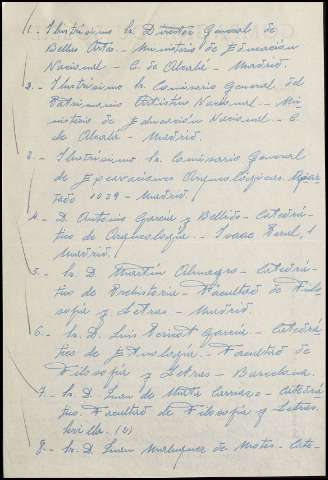 1.- Ilustrísimo Sr. Director General de
Bellas Artes.- Ministerio de Educación
Nacional - C. de Alcalá - Madrid.
2.- Ilustrísimo Sr. Comisario General del
Patrimonio Artístico Nacional.- Mi-
nisterio de Educación Nacional - C.
de Alcalá - Madrid.
3.- Ilustrísimo Sr. Comisario General
de Excavaciones Arqueológicas. Apar-
tado 1039 - Madrid.
4.- D. Antonio García y Bellido - Catedrá-
tico de Arqueología.- Isaac Peral, 1
Madrid.
5.- Sr. D. Martín Almagro - Catedrá-
tico de Prehistoria - Facultad de Filo-
sofía y Letras - Madrid.
6.- Sr. D. Luis Pericot García - Catedrá
tico de Etnología.- Facultad de
Filosofía y Letras - Barcelona.
7.- Sr. D. Juan de Mata Carriazo - Catedrá
tico. Facultad de Filosofía y Letras.
Sevilla.
8.- Sr. D. Juan Maluquer de Motes - Cate-